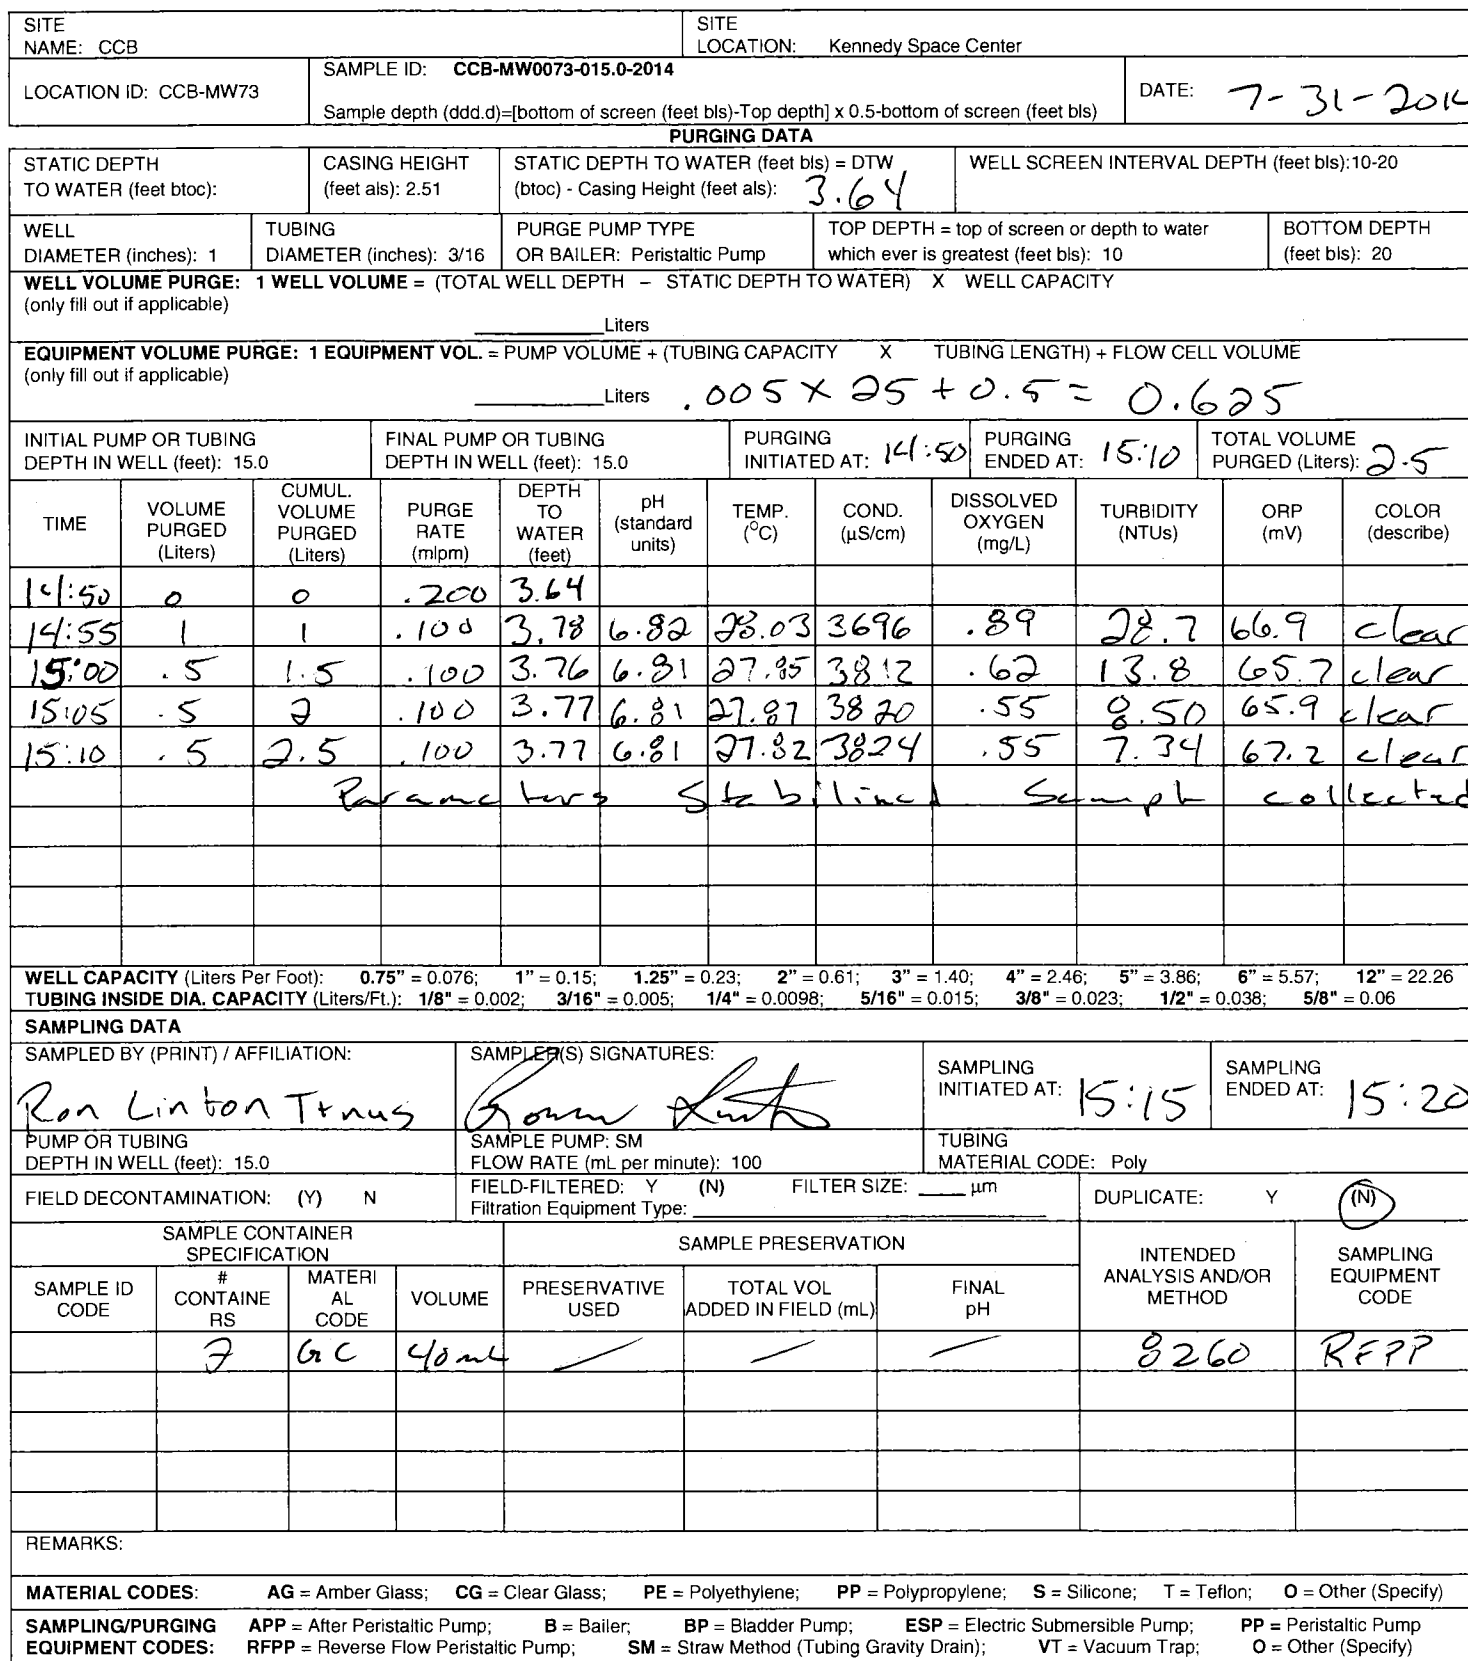 SITE NAME: CCB
SITE LOCATION: Kennedy Space Center
LOCATION ID: CCB-MW73
SAMPLE ID: CCB-MW0073-015.0-2014
Sample depth (ddd.d)=[bottom of screen (feet bls)-Top depth] x 0.5-bottom of screen (feet bls)
DATE: 7-31-2014
PURGING DATA
STATIC DEPTH TO WATER (feet btoc):
CASING HEIGHT (feet als): 2.51
STATIC DEPTH TO WATER (feet bls) = DTW (btoc) - Casing Height (feet als): 3.64
WELL SCREEN INTERVAL DEPTH (feet bls):10-20
WELL DIAMETER (inches): 1
TUBING DIAMETER (inches): 3/16
PURGE PUMP TYPE OR BAILER: Peristaltic Pump
TOP DEPTH = top of screen or depth to water which ever is greatest (feet bls): 10
BOTTOM DEPTH (feet bls): 20
WELL VOLUME PURGE: 1 WELL VOLUME = (TOTAL WELL DEPTH – STATIC DEPTH TO WATER) X WELL CAPACITY
(only fill out if applicable)
Liters
EQUIPMENT VOLUME PURGE: 1 EQUIPMENT VOL. = PUMP VOLUME + (TUBING CAPACITY X TUBING LENGTH) + FLOW CELL VOLUME
(only fill out if applicable)
Liters .005 x 25 + 0.5 = 0.625
INITIAL PUMP OR TUBING DEPTH IN WELL (feet): 15.0
FINAL PUMP OR TUBING DEPTH IN WELL (feet): 15.0
PURGING INITIATED AT: 14:50
PURGING ENDED AT: 15:10
TOTAL VOLUME PURGED (Liters): 2.5
TIME VOLUME PURGED (Liters) CUMUL. VOLUME PURGED (Liters) PURGE RATE (mlpm) DEPTH TO WATER (feet) pH (standard units) TEMP. (°C) COND. (µS/cm) DISSOLVED OXYGEN (mg/L) TURBIDITY (NTUs) ORP (mV) COLOR (describe)
14:50 0 0 .200 3.64
14:55 1 1 .100 3.78 6.82 28.03 3696 .89 28.7 66.9 clear
15:00 .5 1.5 .100 3.76 6.81 27.85 3812 .62 13.8 65.7 clear
15:05 .5 2 .100 3.77 6.81 27.87 3820 .55 8.50 65.9 clear
15:10 .5 2.5 .100 3.77 6.81 27.82 3824 .55 7.34 67.2 clear
Parameters Stabilized Sample collected
WELL CAPACITY (Liters Per Foot): 0.75" = 0.076; 1" = 0.15; 1.25" = 0.23; 2" = 0.61; 3" = 1.40; 4" = 2.46; 5" = 3.86; 6" = 5.57; 12" = 22.26
TUBING INSIDE DIA. CAPACITY (Liters/Ft.): 1/8" = 0.002; 3/16" = 0.005; 1/4" = 0.0098; 5/16" = 0.015; 3/8" = 0.023; 1/2" = 0.038; 5/8" = 0.06
SAMPLING DATA
SAMPLED BY (PRINT) / AFFILIATION: Ron Linton Tetnus
SAMPLER(S) SIGNATURES:
SAMPLING INITIATED AT: 15:15
SAMPLING ENDED AT: 15:20
PUMP OR TUBING DEPTH IN WELL (feet): 15.0
SAMPLE PUMP: SM
FLOW RATE (mL per minute): 100
TUBING MATERIAL CODE: Poly
FIELD DECONTAMINATION: (Y) N
FIELD-FILTERED: Y (N) FILTER SIZE: ____ µm
Filtration Equipment Type:
DUPLICATE: Y (N)
SAMPLE CONTAINER SPECIFICATION
SAMPLE PRESERVATION
INTENDED ANALYSIS AND/OR METHOD
SAMPLING EQUIPMENT CODE
SAMPLE ID CODE # CONTAINERS MATERIAL CODE VOLUME PRESERVATIVE USED TOTAL VOL ADDED IN FIELD (mL) FINAL pH
GC 40 mL 8260 RFPP
REMARKS:
MATERIAL CODES: AG = Amber Glass; CG = Clear Glass; PE = Polyethylene; PP = Polypropylene; S = Silicone; T = Teflon; O = Other (Specify)
SAMPLING/PURGING EQUIPMENT CODES: APP = After Peristaltic Pump; B = Bailer; BP = Bladder Pump; ESP = Electric Submersible Pump; PP = Peristaltic Pump
RFPP = Reverse Flow Peristaltic Pump; SM = Straw Method (Tubing Gravity Drain); VT = Vacuum Trap; O = Other (Specify)